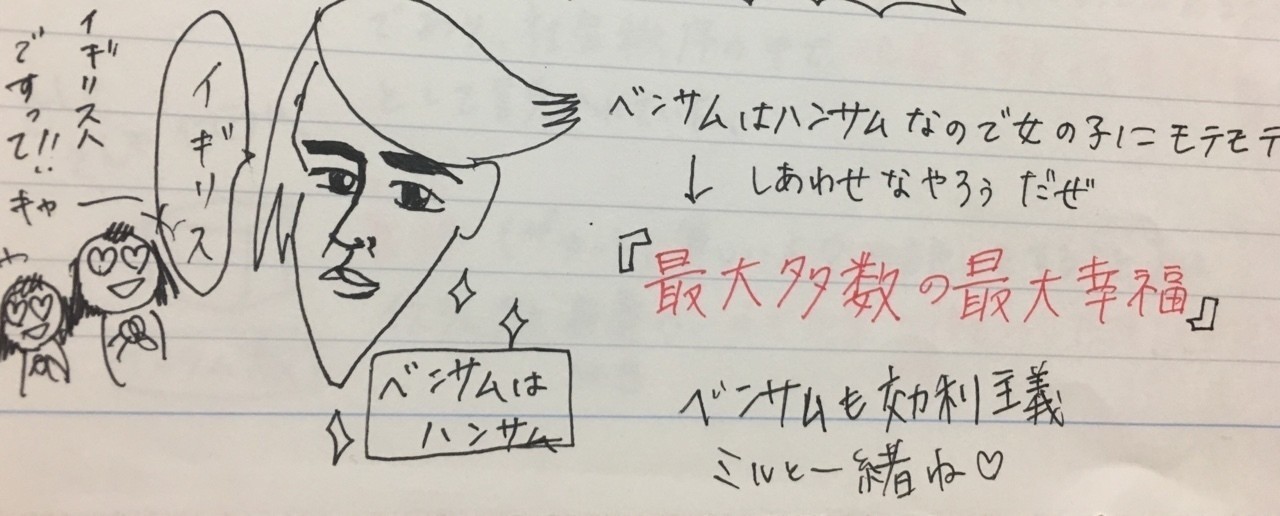 イギリス人
ですって!! キャー
イギリス
ベンサムはハンサムなので女の子にモテモテ
↓ しあわせなやろうだぜ
『最大多数の最大幸福』
ベンサムは
ハンサム
ベンサムも効利主義
ミルと一緒ね♡